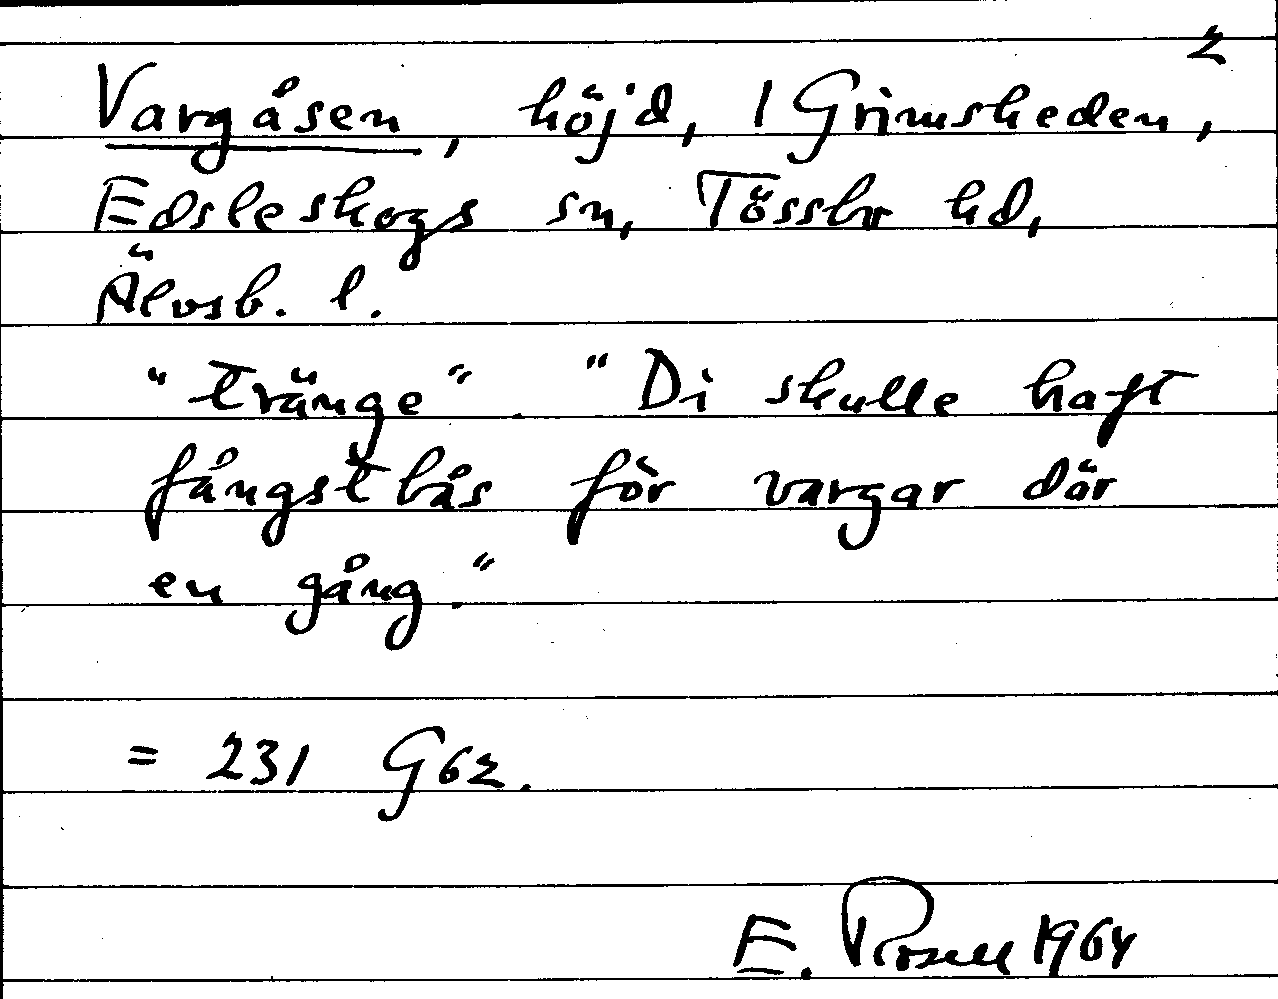 2
Vargåsen, höjd, 1 Grimsheden,
Edsleskogs sn, Tössbo hd,
Älvsb. l.
"tränge". "Di skulle haft
fångstbås för vargar där
en gång."
= 231 G62.
E. Rosell 1964